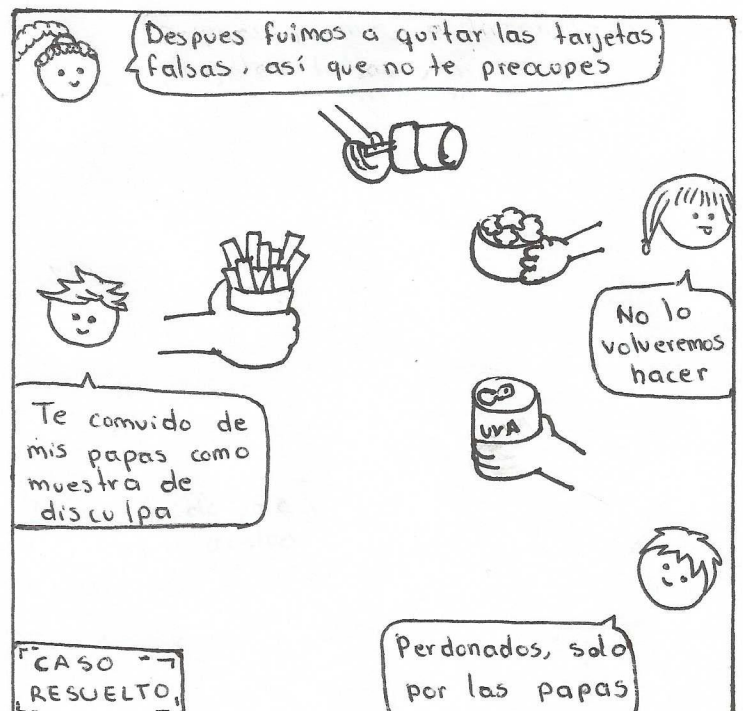 Despues fuimos a quitar las tarjetas
falsas, así que no te preocupes
No lo
volveremos
hacer
Te comvido de
mis papas como
muestra de
disculpa
UVA
Perdonados, solo
por las papas
CASO
RESUELTO